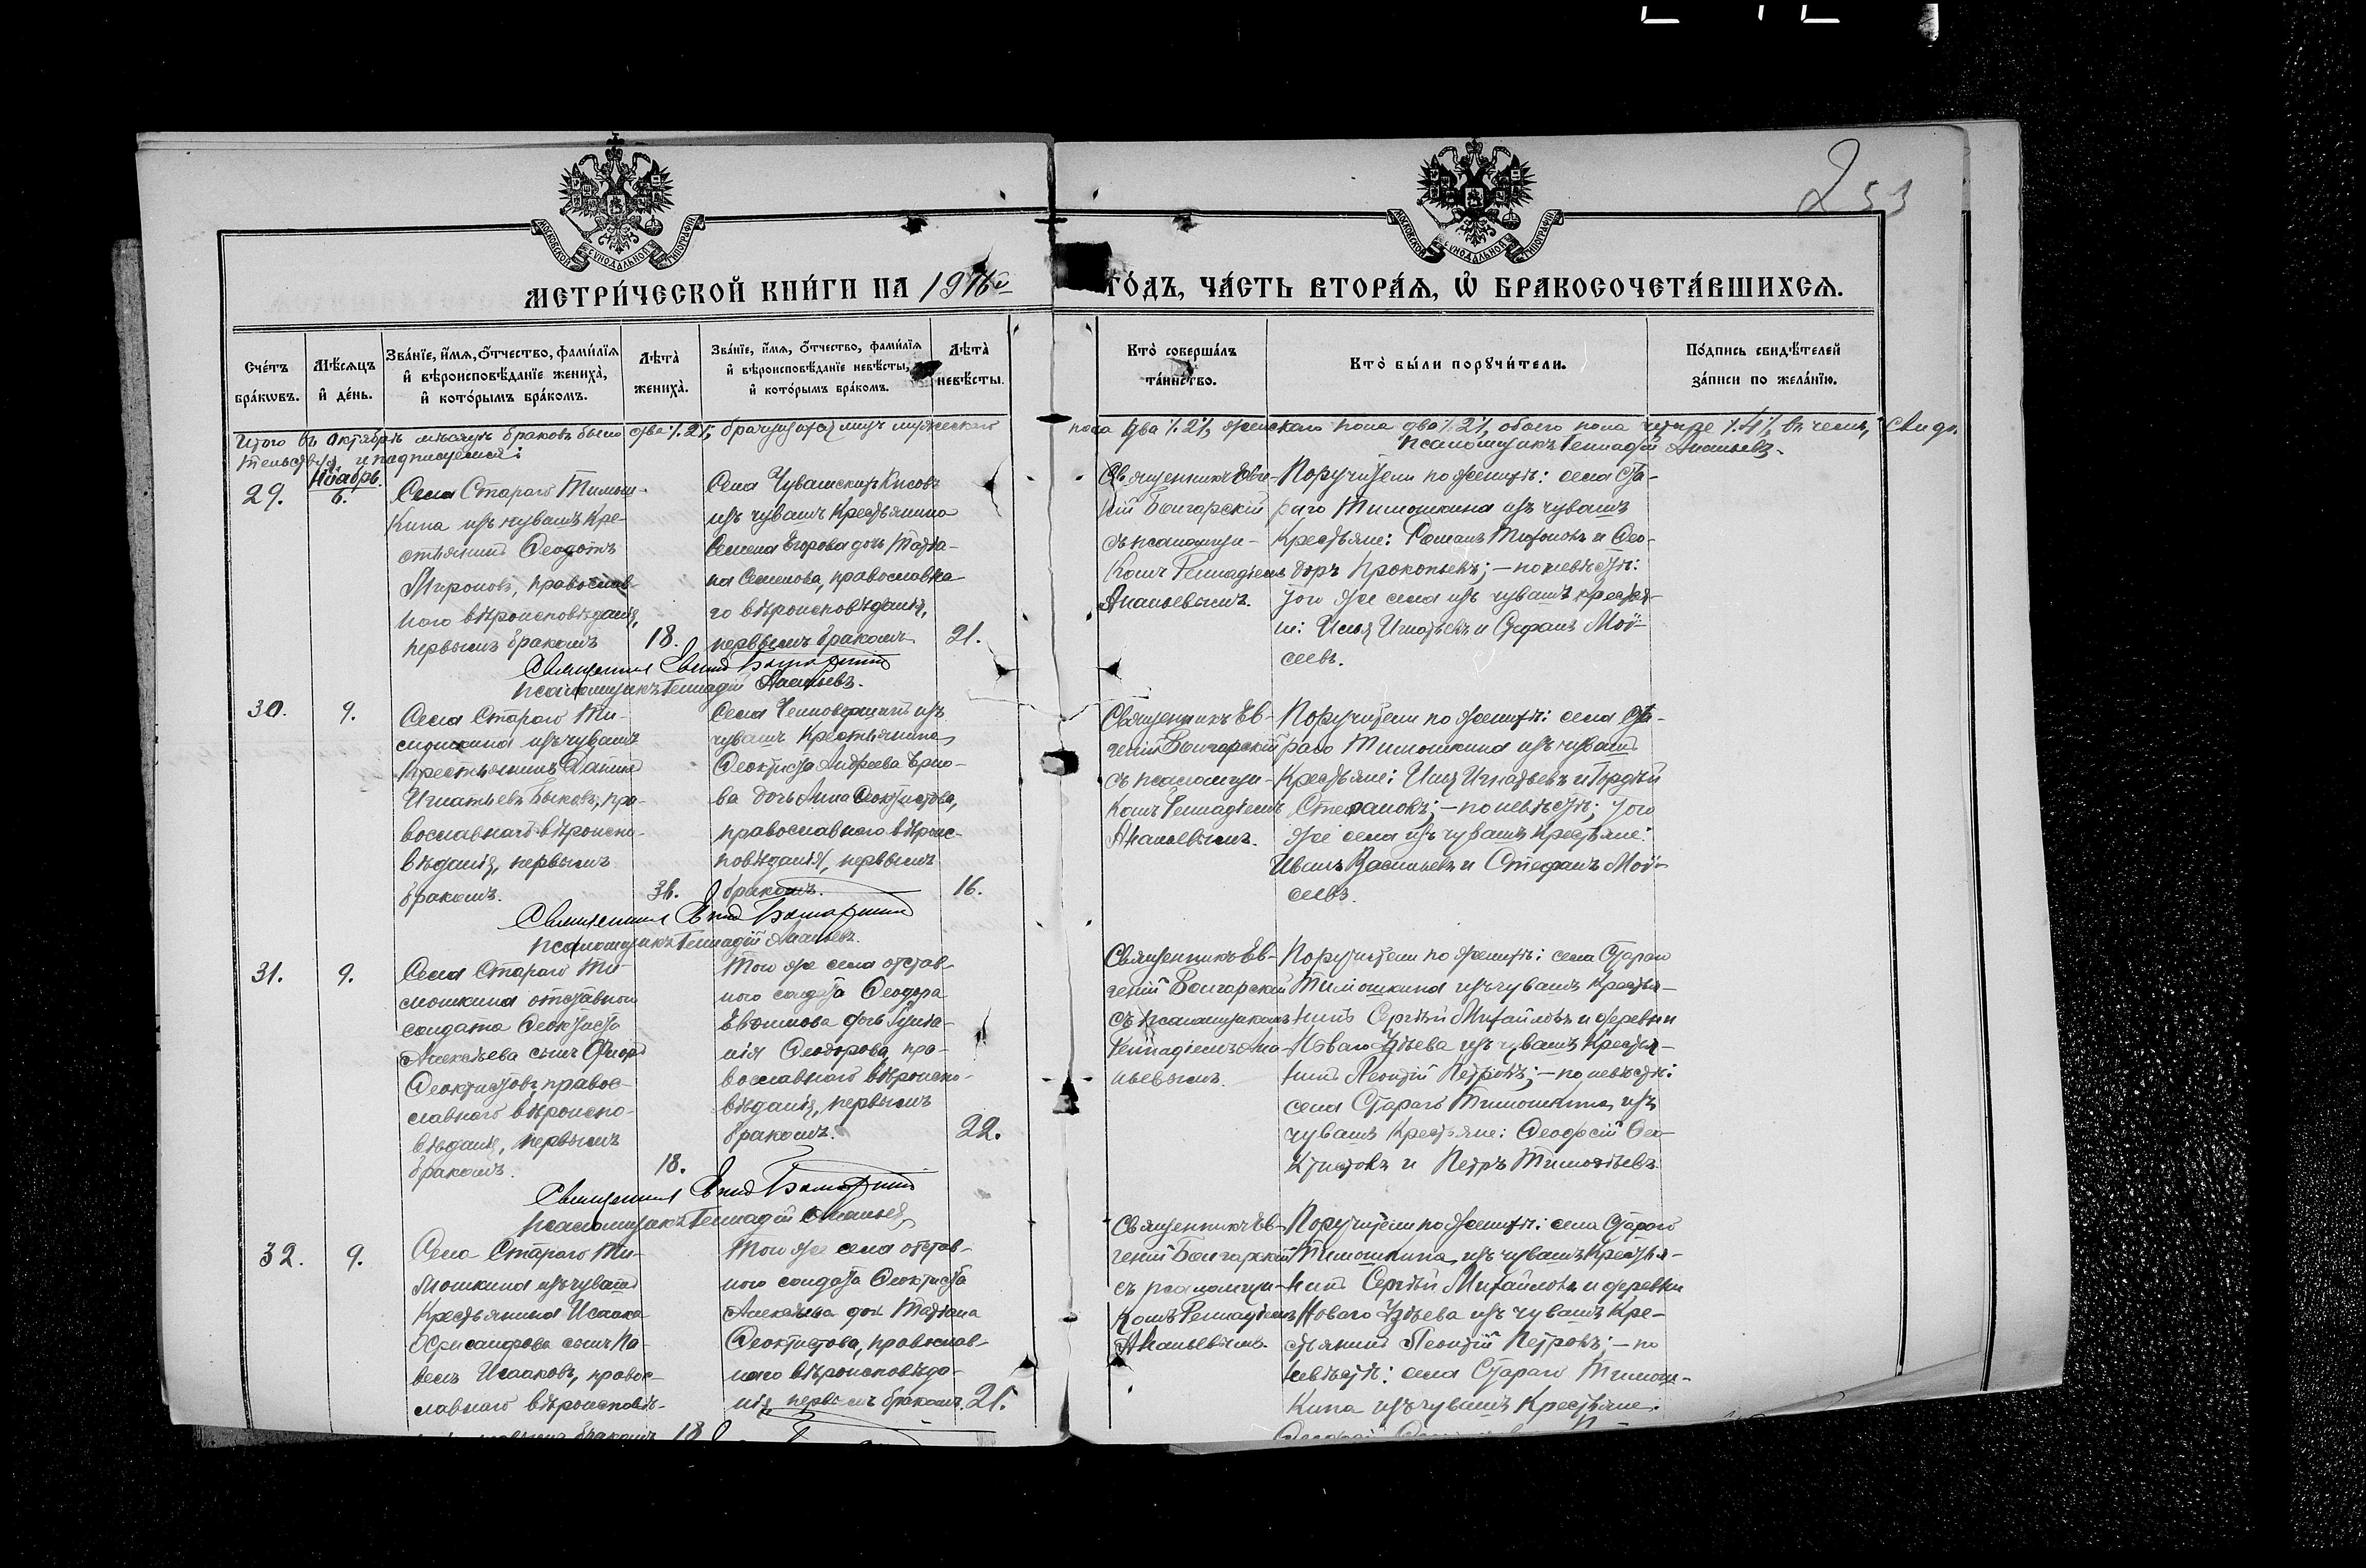 253
МОСКОВСКОЙ СѴНОДАЛЬНОЙ ТИПОГРАФІИ
МОСКОВСКОЙ СѴНОДАЛЬНОЙ ТИПОГРАФІИ
МЕТРИ́ЧЕСКОЙ КНИ́ГИ НА 1916й
ГО́ДЪ, ЧА́СТЬ ВТОРА́Ѧ, Ѽ БРАКОСОЧЕТА́ВШИХСѦ.
Сче́тъ бра́кѡвъ.
Мѣ́сѧцъ и҆ де́нь.
Зва́нїе, и҆́мѧ, о҆́тчество, фами́лїѧ и҆ вѣроисповѣ́данїе жениха̀, и҆ кото́рымъ бра́комъ.
Лѣта̀ жениха̀.
Зва́нїе, и҆́мѧ, о҆́тчество, фами́лїѧ и҆ вѣроисповѣ́данїе невѣ́сты, и҆ кото́рымъ бра́комъ.
Лѣта̀ невѣ́сты.
Кто̀ соверша́лъ та́инство.
Кто̀ бы́ли порꙋчи́тели.
По́дпись свидѣ́телей за́писи по жела́нїю.
Итого въ октябрѣ мѣсяцѣ браковъ было два /.2/., брачущихся лицъ мужескаго
пола два /.2/., женскаго пола два /.2/., обоего пола четыре /.4/., въ чемъ, свидѣ-
тельствуя, и подписуемся:
псаломщикъ Геннадій Ананьевъ.
Ноябрь.
29.
6.
Села Стараго Тимош-
кина изъ чувашъ кре-
стьянинъ Ѳеодотъ
Мироновъ, православ-
ного вѣроисповѣданія,
первымъ бракомъ
18.
Села Чувашскихъ Кисовъ
изъ чувашъ крестьянина
Семена Егорова дочь Татіа-
на Семенова, православна-
го вѣроисповѣданія,
первымъ бракомъ
21.
Священникъ Евге-
ній Болгарскій
съ псаломщи-
комъ Геннадіемъ
Ананьевымъ.
Поручители по женихѣ: села Ста-
раго Тимошкина изъ чувашъ
крестьяне: Романъ Тихоновъ и Ѳео-
доръ Прокопьевъ; — по невѣстѣ:
того же села изъ чувашъ крестья-
не: Илья Игнатьевъ и Стефанъ Мой-
сеевъ.
Священникъ Евгеній Болгарскій
псаломщикъ Геннадій Ананьевъ.
30.
9.
Села Стараго Ти-
мошкина изъ чувашъ
крестьянинъ Данiилъ
Игнатьевъ Быковъ, пра-
вославнаго вѣроиспо-
вѣданія, первымъ
бракомъ.
Села изъ
чувашъ крестьянина
Ѳеоктиста Андреева
ва дочь Анна Ѳеоктистова,
православного вѣроис-
повѣданія, первымъ
бракомъ.
16.
Священникъ Ев-
геній Болгарскій
съ псаломщи-
комъ Геннадіемъ
Ананьевымъ.
Поручители по женихѣ: села Ста-
раго Тимошкина изъ чувашъ
крестьяне: Илія Игнатьевъ и Гордѣй
Стефановъ; — по невѣстѣ; того
же села изъ чувашъ крестьяне:
Иванъ Васильевъ и Стефанъ Мой-
сеевъ.
Священникъ Евгеній Болгарскій
псаломщикъ Геннадій Ананьевъ.
31.
9.
Села Стараго Ти-
мошкина отставного
солдата Ѳеоктиста
Алексѣева сынъ
Ѳеоктистовъ, правос-
славнаго вѣроиспо-
вѣданія, первымъ
бракомъ.
18.
Того же села отстав-
ного солдата Ѳеодора
Евѳимова дочь Іуліа-
нія Ѳеодорова, пра-
вославнаго вѣроиспо-
вѣданія, первымъ
бракомъ.
22.
Священникъ Ев-
геній Болгарскій
съ псаломщикомъ
Геннадіемъ Ана-
ньевымъ.
Поручители по женихѣ: села Стараго
Тимошкина изъ чувашъ крестья-
нинъ Сергѣй Михайловъ и деревни
Новаго изъ чувашъ крестья-
нинъ Леонтій Петровъ; — по невѣстѣ:
села Стараго Тимошкина, изъ
чувашъ крестьяне: Ѳеодосій Ѳео-
ктистовъ и Петръ Тимоѳѣевъ.
Священникъ Евгеній Болгарскій
псаломщикъ Геннадій Ананьевъ
32.
9.
Села Стараго Ти-
мошкина изъ чувашъ
крестьянина Исаака
Хрисанфова сынъ Па-
велъ Исааковъ, правос-
славнаго вѣроисповѣ-
первымъ бракомъ 18
Того же села отстав-
ного солдата Ѳеоктиста
Алексѣева дочь Татіана
Ѳеоктистова, православ-
наго вѣроисповѣда-
нія, первымъ бракомъ. 21.
Священникъ Ев-
геній Болгарскій
съ псаломщи-
комъ Геннадіемъ
Ананьевымъ.
Поручители по женихѣ: села Стараго
Тимошкина, изъ чувашъ крестья-
нинъ Сергѣй Михайловъ и деревни
Новаго изъ чувашъ кре-
стьянинъ Леонтій Петровъ; — по
невѣстѣ: села Стараго Тимош-
кина изъ чувашъ крестьяне: